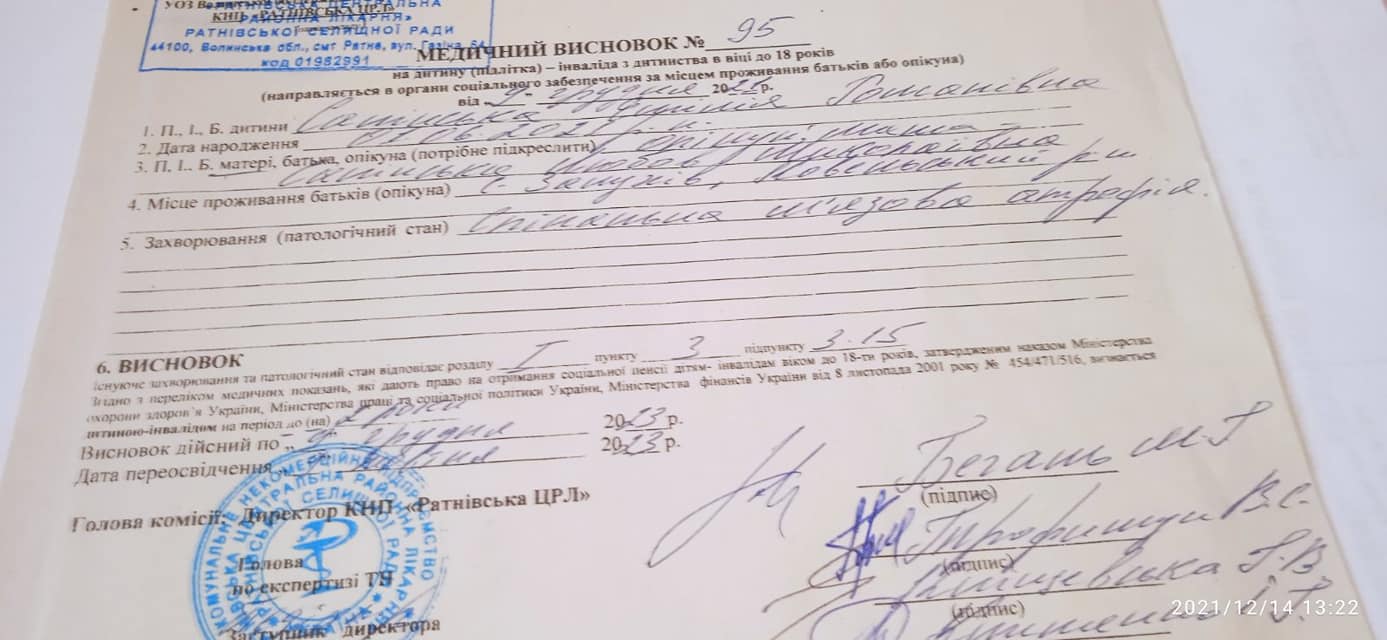 УОЗ
КНП «РАТНІВСЬКА ЦРЛ»
«РАТНІВСЬКА ЦЕНТРАЛЬНА
РАЙОННА ЛІКАРНЯ»
РАТНІВСЬКОЇ СЕЛИЩНОЇ РАДИ
44100, Волинська обл., смт Ратне, вул. Газіна
код 01982991
МЕДИЧНИЙ ВИСНОВОК № 95
на дитину (підлітка) – інваліда з дитинства в віці до 18 років
(направляється в органи соціального забезпечення за місцем проживання батьків або опікуна)
від „9" грудня 2021р.
1. П., І., Б. дитини Романівна
2. Дата народження 2021 р.н.
3. П. І.. Б. матері, батька, опікуна (потрібне підкреслити)
Любов Миколаївна
4. Місце проживання батьків (опікуна) с. Ковельський р-н
5. Захворювання (патологічний стан) Спінальна м'язова атрофія.
6. ВИСНОВОК
Існуюче захворювання та патологічний стан відповідає розділу I пункту 3 підпункту 3.15
Згідно з переліком медичних показань, які дають право на отримання соціальної пенсії дітям- інвалідам віком до 18-ти років, затвердженим наказом Міністерства
охорони здоров'я України, Міністерства праці та соціальної політики України, Міністерства фінансів України від 8 листопада 2001 року № 454/471/516, визнається
дитиною-інвалідом на період до (на) 2 роки
Висновок дійсний по „9" грудня 2023р.
Дата переосвідчення 2023р.
Голова комісії: Директор КНП «Ратнівська ЦРЛ»
М Г
(підпис)
Голова
по експертизі ТН
В.С.
(підпис)
Г.В
Заступник директора
(підпис)
КОМУНАЛЬНЕ НЕКОМЕРЦІЙНЕ ПІДПРИЄМСТВО
«РАТНІВСЬКА ЦЕНТРАЛЬНА РАЙОННА ЛІКАРНЯ»
РАТНІВСЬКОЇ СЕЛИЩНОЇ РАДИ
УКРАЇНА
2021/12/14 13:22